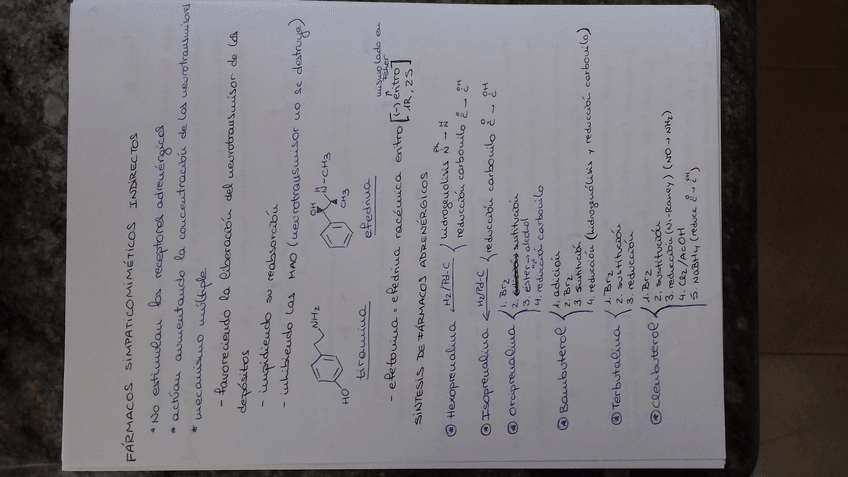 FÁRMACOS SIMPATICOMIMÉTICOS INDIRECTOS
* No estimulan los receptores adrenérgicos
* actúan aumentando la concentración de los neurotransmisores
* mecanismo múltiple
- favoreciendo la liberación del neurotransmisor de los
depósitos
- impidiendo su reabsorción
- inhibiendo las MAO (neurotransmisor no se destruye)
HO NH2
tiramina
OH H
N-CH3
CH3
efedrina
mismo lado en
Fisher
- efetonina = efedrina racémica eritro [(-) eritro]
1R, 2S
SÍNTESIS DE FÁRMACOS ADRENÉRGICOS
* Hexoprenalina H2/Pd-C { hidrogenolisis N → N
reducción carbonilo C → C
* Isoprenalina H2/Pd-C { reducción carbonilo C → C
* Orciprenalina { 1. Br2
2. sustitución
3. ester → alcohol
4. reducción carbonilo
* Bambuterol { 1. adición
2. Br2
3. sustitución
4. reducción (hidrogenólisis y reducción carbonilo)
* Terbutalina { 1. Br2
2. sustitución
3. reducción
* Clenbuterol { 1. Br2
2. sustitución
3. reducción (Ni-Raney) (NO → NH2)
4. Cl2/AcOH
5. NaBH4 (reduce C → C)